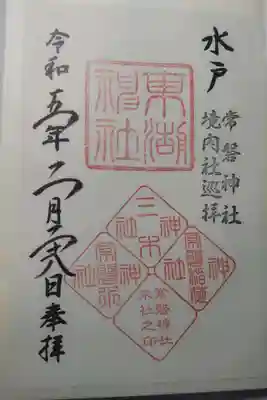 水戸
常磐神社
境内社巡拝
東湖
神社
三木神社
常磐稲荷神社
常磐神社
末社之印
令和五年二月二八日奉拝